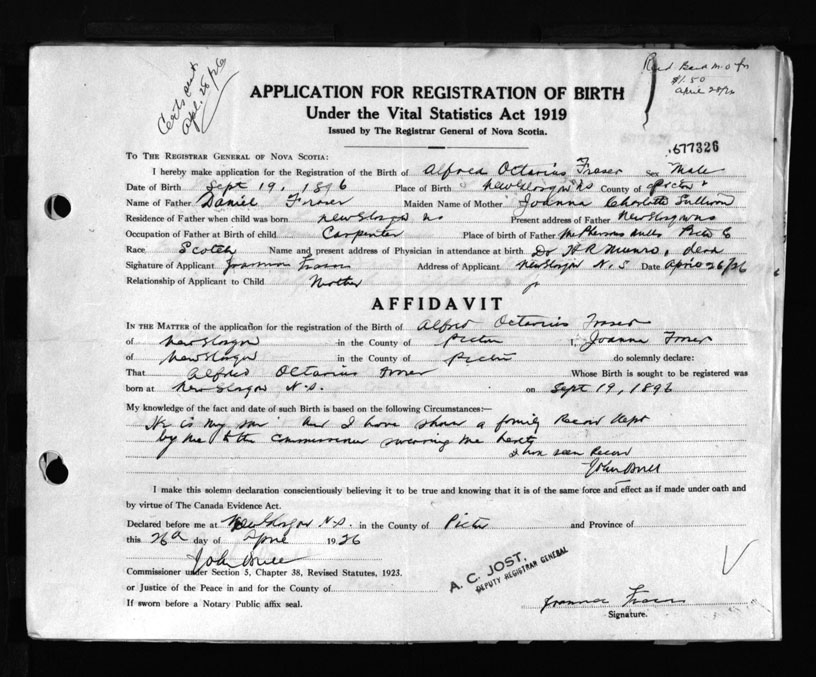 Certs sent
Apl. 28/26
Recd Bank M.O for
$1.50
April 28/26
APPLICATION FOR REGISTRATION OF BIRTH
Under the Vital Statistics Act 1919
Issued by The Registrar General of Nova Scotia.
677326
TO THE REGISTRAR GENERAL OF NOVA SCOTIA:
I hereby make application for the Registration of the Birth of Alfred Octavius Fraser Sex Male
Date of Birth Sept 19, 1896 Place of Birth New Glasgow NS County of Pictou
Name of Father Daniel Fraser Maiden Name of Mother Joanna Charlotte Sullivan
Residence of Father when child was born New Glasgow NS Present address of Father New Glasgow NS
Occupation of Father at Birth of child Carpenter Place of birth of Father McPhersons Mills Pictou
Race Scotch Name and present address of Physician in attendance at birth Dr H R Munro, dead
Signature of Applicant Joanna Fraser Address of Applicant New Glasgow N. S Date April 26/26
Relationship of Applicant to Child Mother
AFFIDAVIT
IN THE MATTER of the application for the registration of the Birth of Alfred Octavius Fraser
of New Glasgow in the County of Pictou I, Joanna Fraser
of New Glasgow in the County of Pictou do solemnly declare:
That Alfred Octavius Fraser Whose Birth is sought to be registered was
born at New Glasgow N.S. on Sept 19, 1896
My knowledge of the fact and date of such Birth is based on the following Circumstances:—
He is my son and I have shown a family Record kept
by me to the Commissioner swearing me hereto
I have seen Record
John
I make this solemn declaration conscientiously believing it to be true and knowing that it is of the same force and effect as if made under oath and
by virtue of The Canada Evidence Act.
Declared before me at New Glasgow N.S. in the County of Pictou and Province of
this 26 day of April 1926
John
Commissioner under Section 5, Chapter 38, Revised Statutes, 1923.
or Justice of the Peace in and for the County of
If sworn before a Notary Public affix seal.
A. C. JOST,
DEPUTY REGISTRAR GENERAL
Joanna Fraser
Signature.